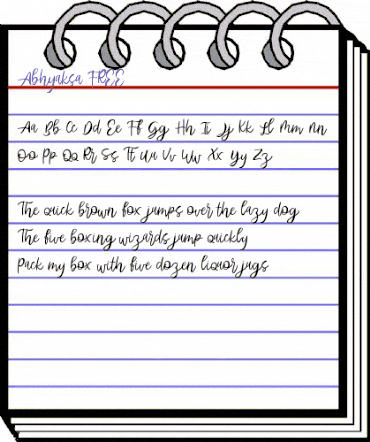 Abhyaksa FREE
Aa Bb Cc Dd Ee Ff Gg Hh Ii Jj Kk Ll Mm Nn
Oo Pp Qq Rr Ss Tt Uu Vv Ww Xx Yy Zz
The quick brown fox jumps over the lazy dog
The five boxing wizards jump quickly
Pack my box with five dozen liquor jugs